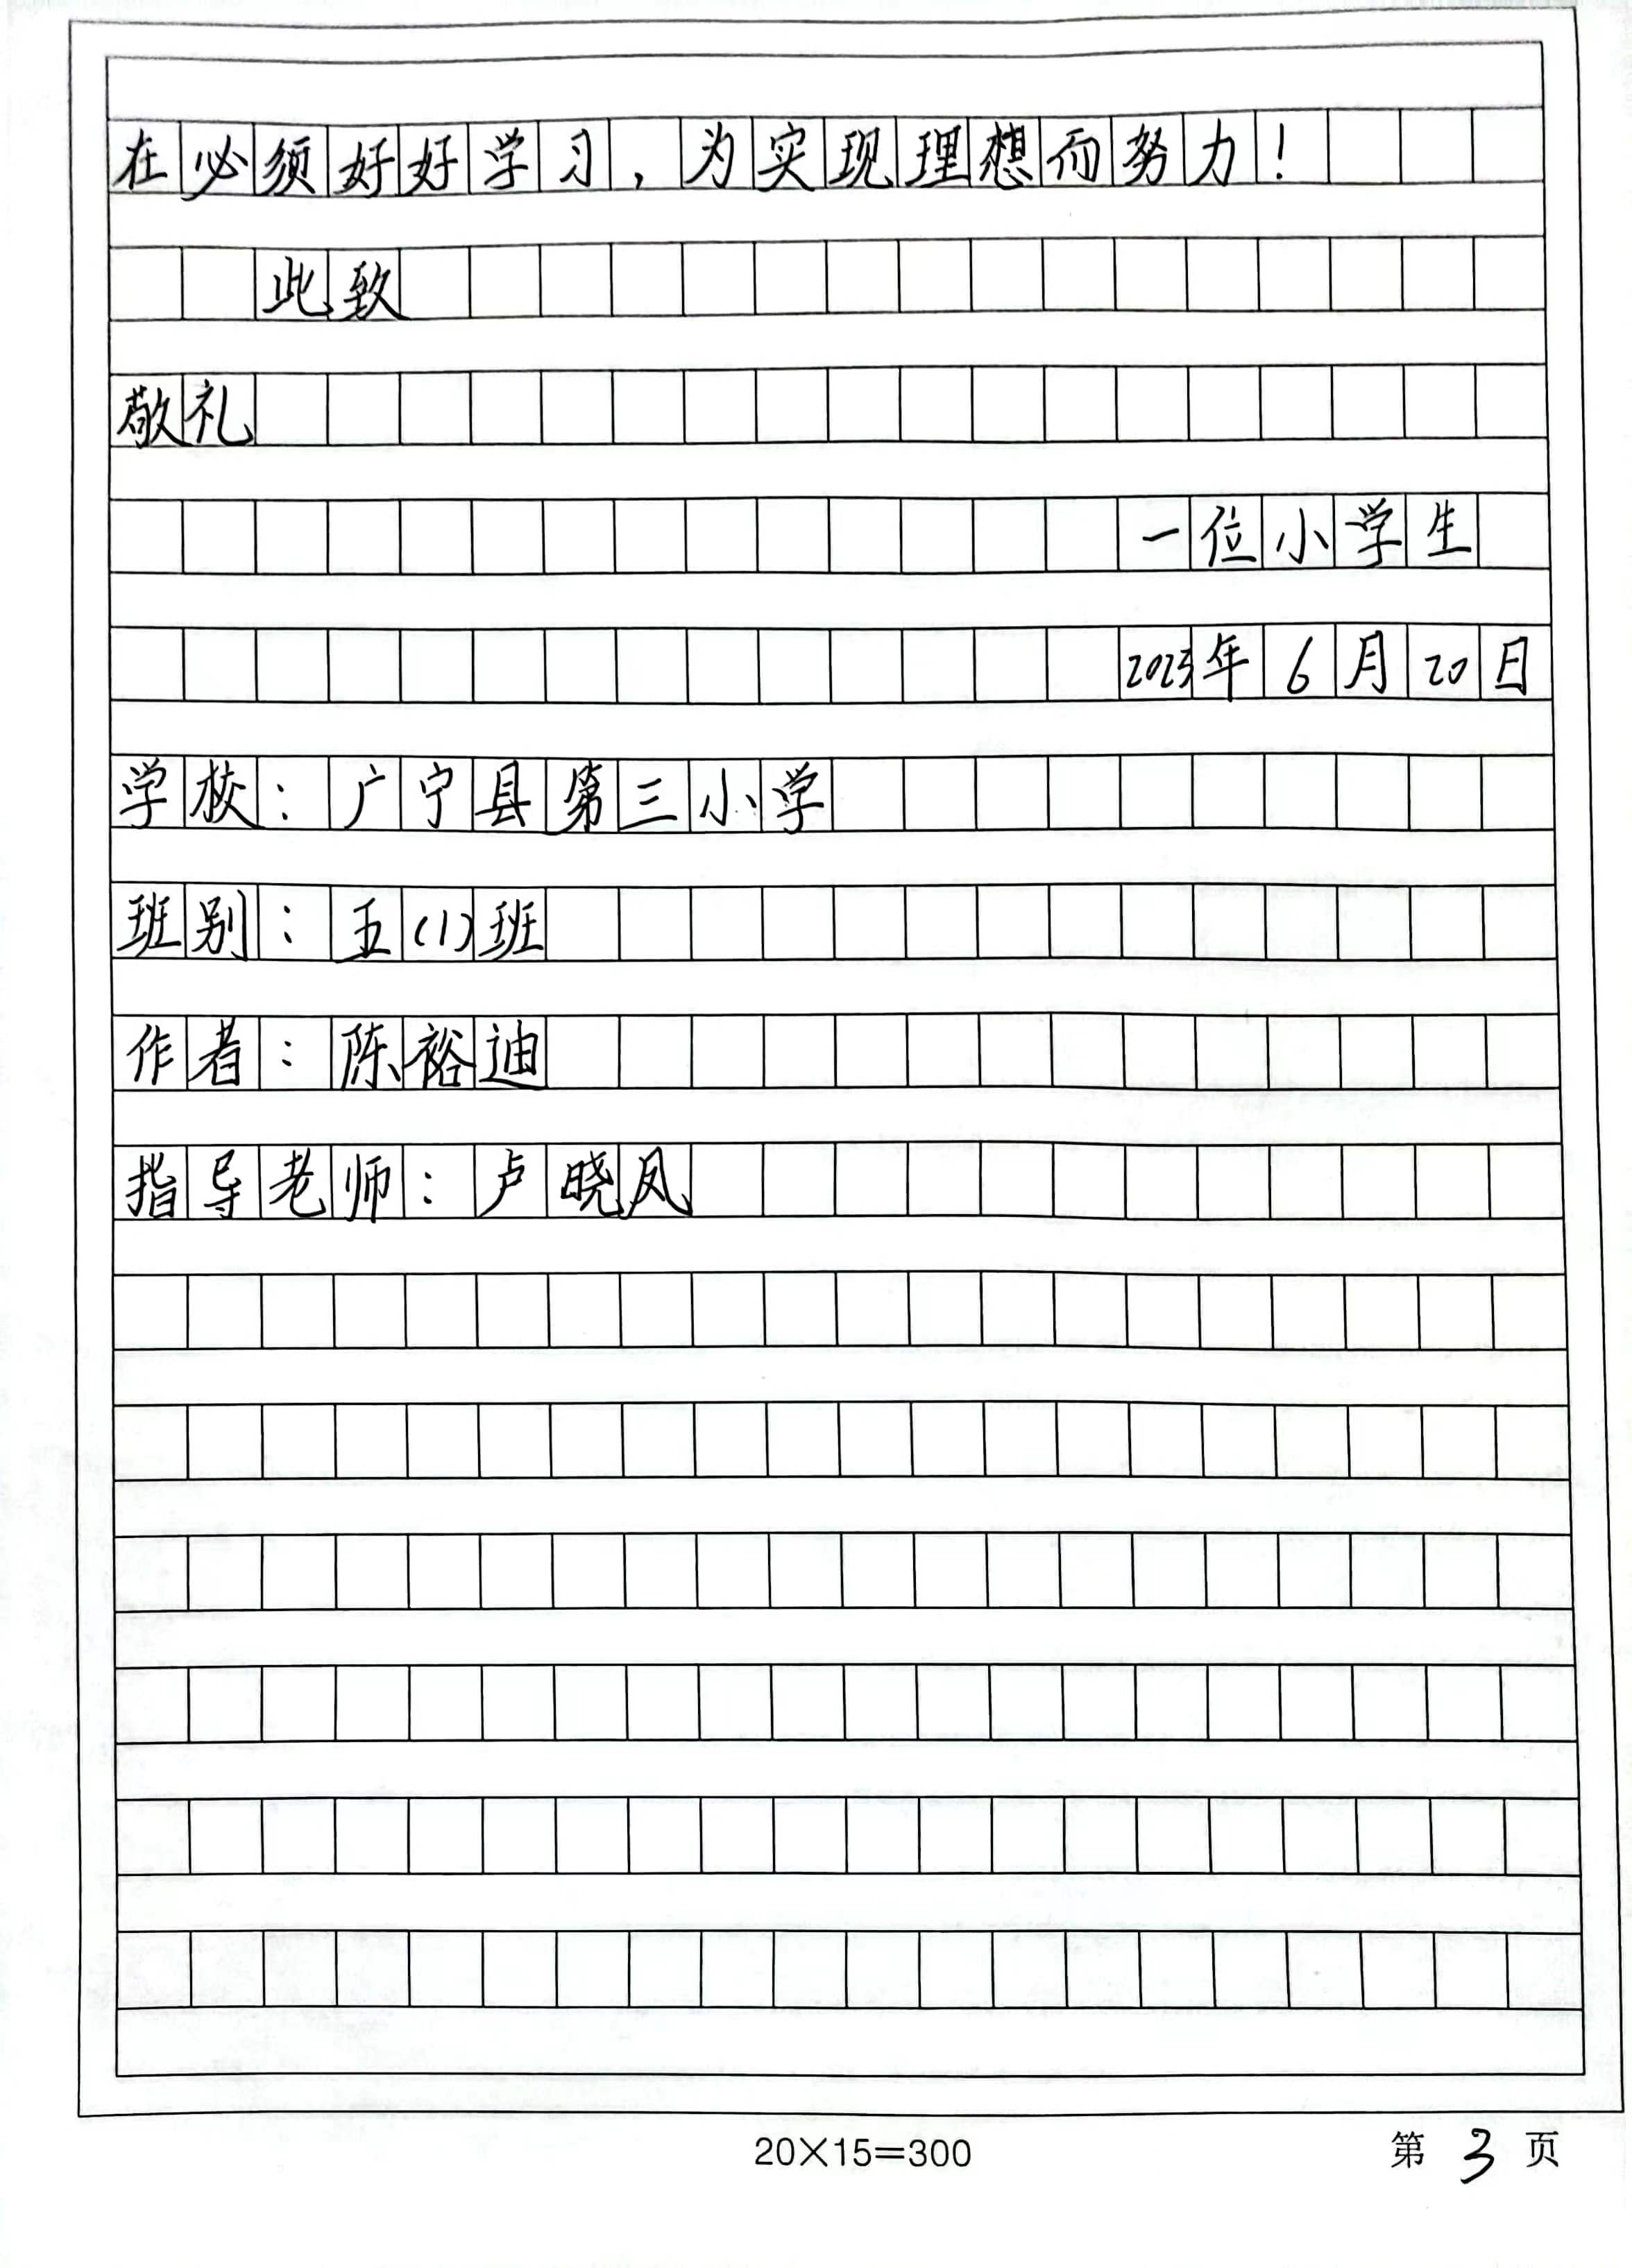 在必须好好学习，为实现理想而努力！
此致
敬礼
一位小学生
2023年6月20日
学校：广宁县第三小学
班别：五(1)班
作者：陈裕迪
指导老师：卢晓凤
20×15=300
第3页